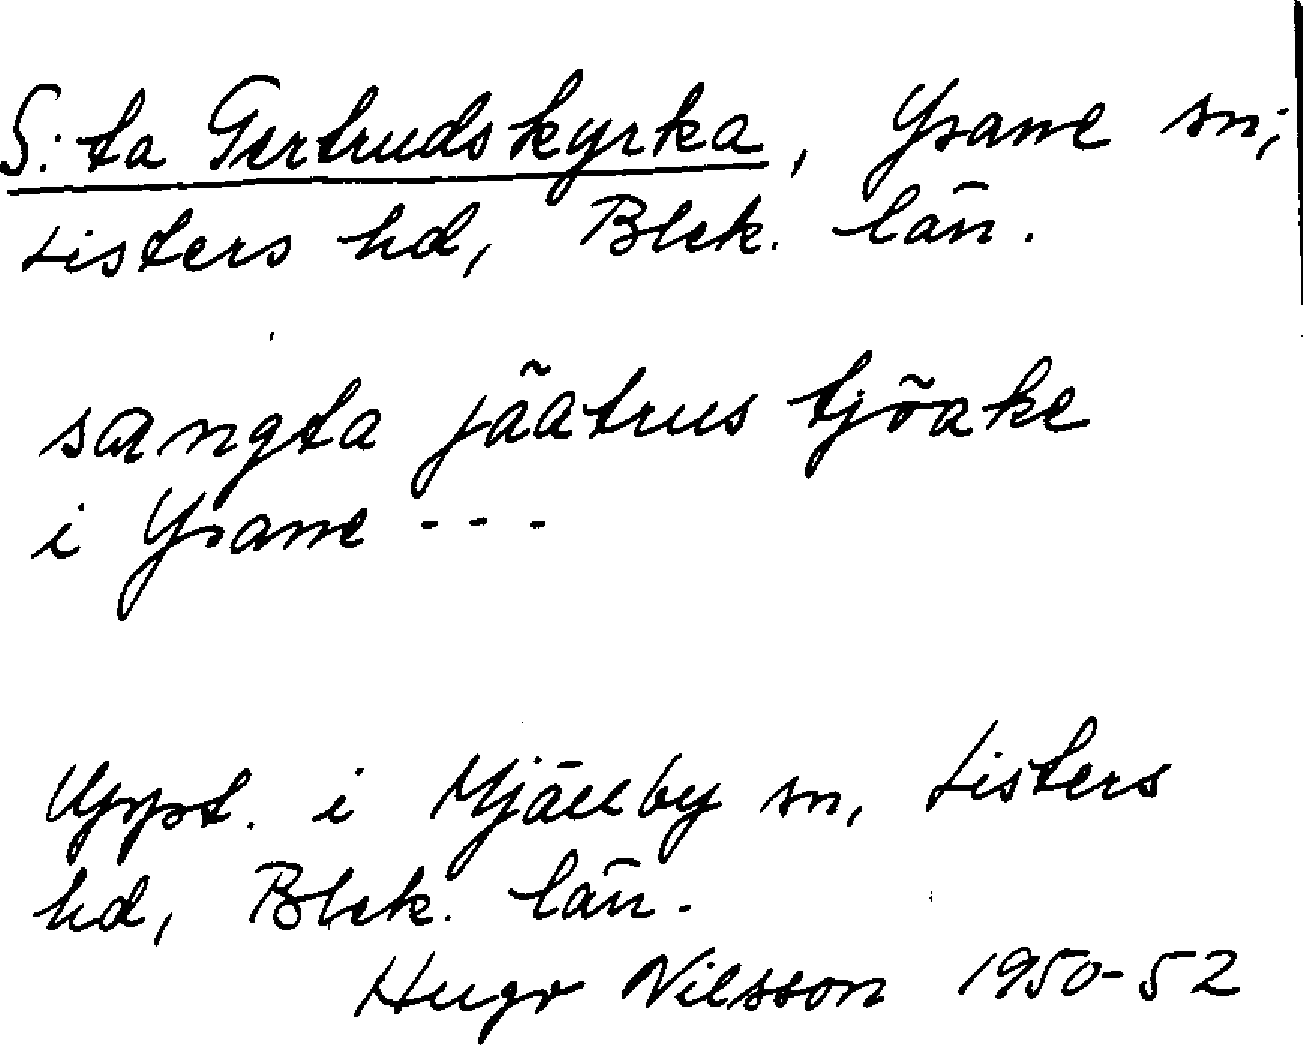 S:ta Gertrudskyrka, Ysane sn,
Listers hd, Blek. län.
sangta jäatrus tjöake
i Ysane - - -
Uppt. i Mjällby sn, Listers
hd, Blek. län.
Hugo Nilsson 1950-52